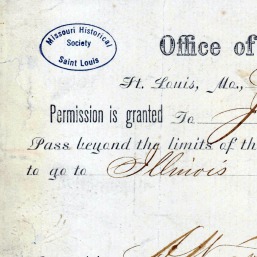 Missouri Historical
Society
Saint Louis
Office of
St. Louis, Mo.,
Permission is granted To
Pass beyond the limits of th
to go to Illinois